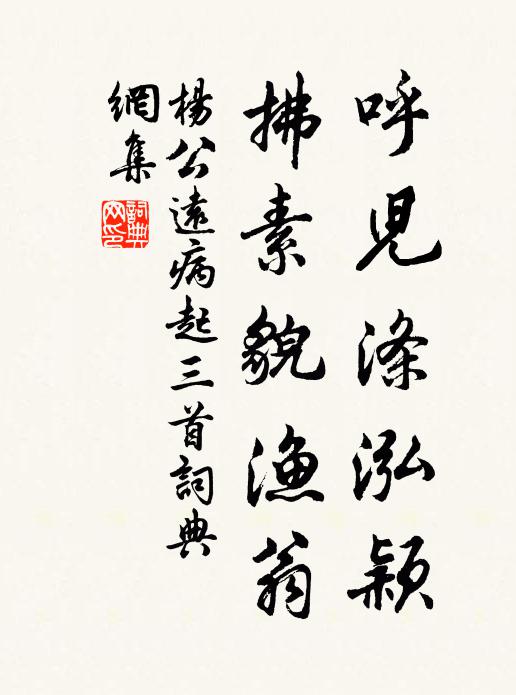 呼兒滌泓穎
拂素貌漁翁
楊公遠病起三首詞典
網集
詞典網印